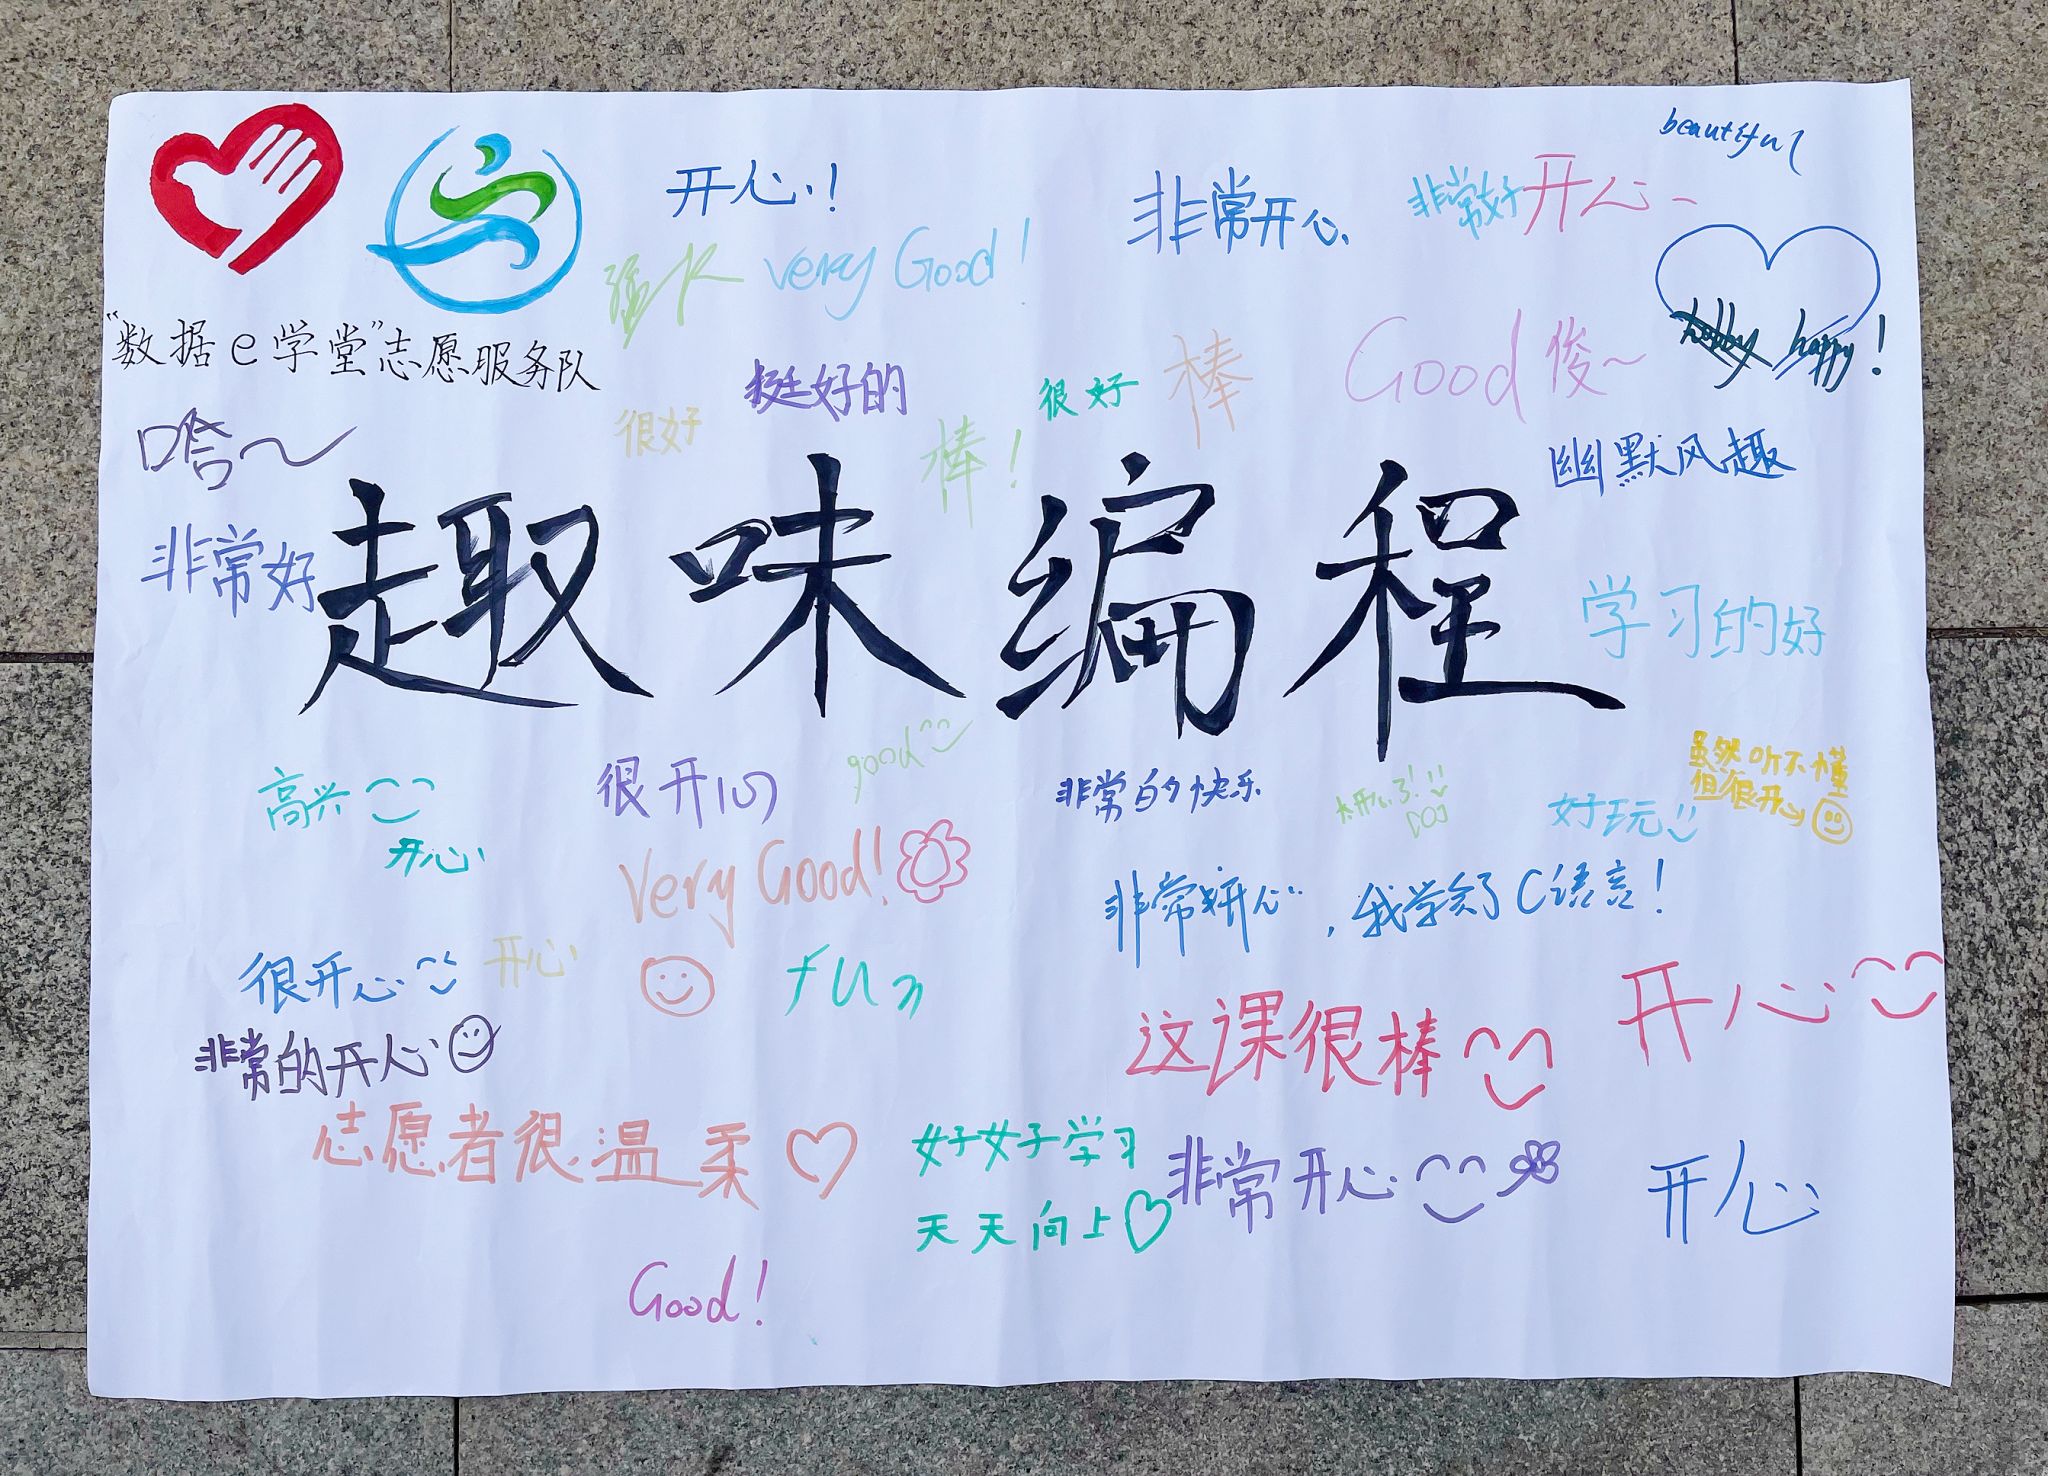 beautiful
开心!
非常开心
非常好
开心
very Good!
"数据e学堂"志愿服务队
happy!
挺好的
很好
棒
Good 俊~
很好
棒!
哈~
幽默风趣
非常好
趣味编程
学习的好
good
高兴
很开心
非常的快乐
太开心了!
好玩
虽然听不懂
但很开心
开心
Very Good!
,我学会了C语言!
很开心
开心
fun
开心
非常的开心
这课很棒
志愿者很温柔
好好学习
天天向上
非常开心
开心
Good!